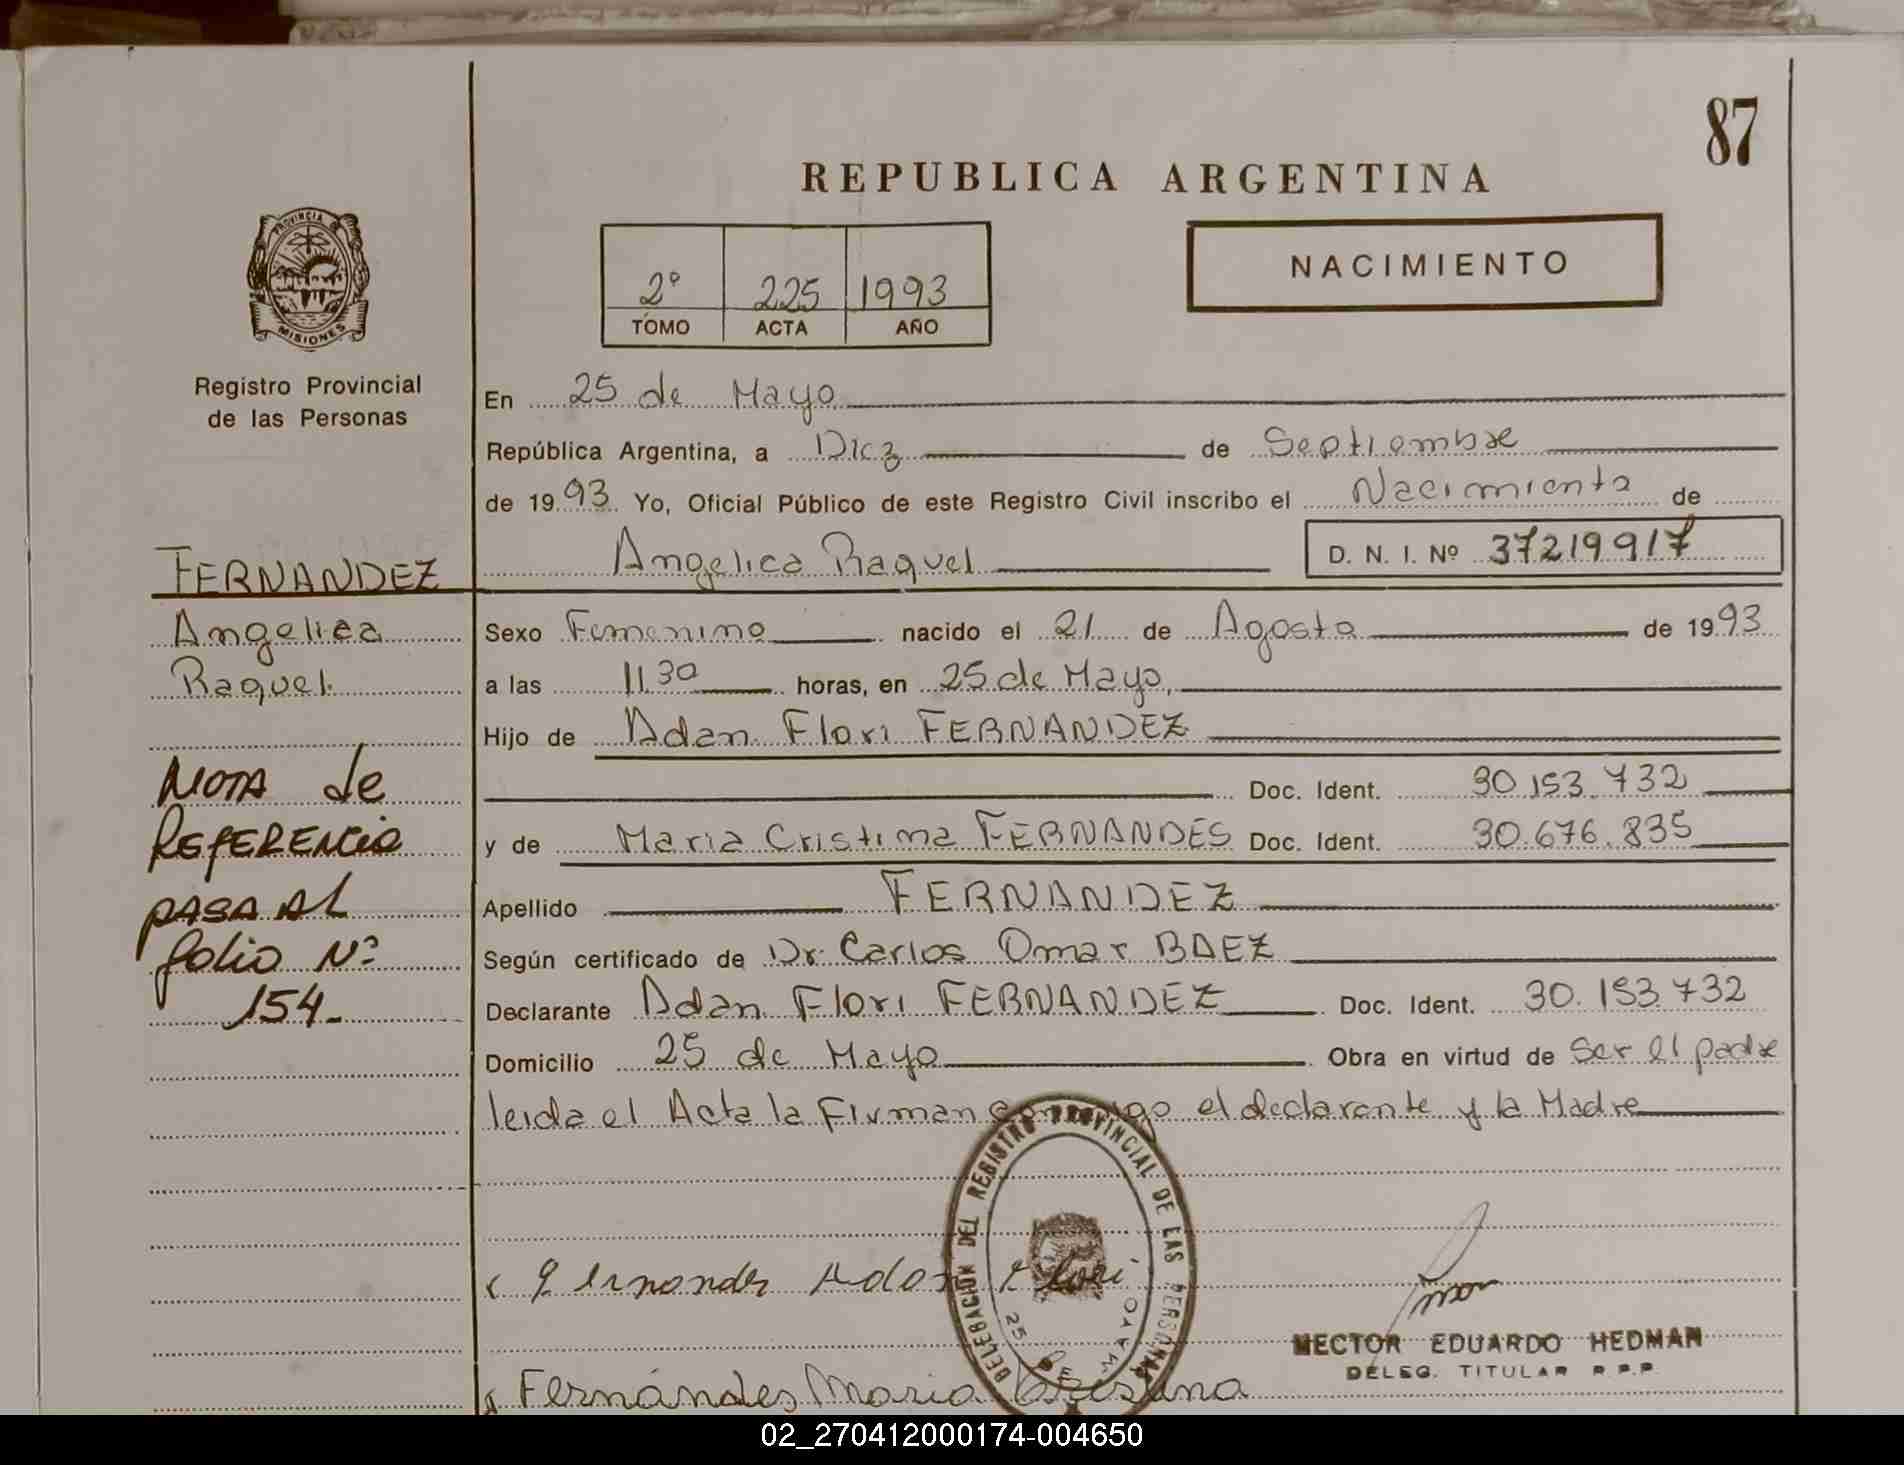 87
REPUBLICA ARGENTINA
PROVINCIA
MISIONES
2º 225 1993
TOMO ACTA AÑO
NACIMIENTO
Registro Provincial
de las Personas
En 25 de Mayo
República Argentina, a Diez de Septiembre
de 1993 Yo, Oficial Público de este Registro Civil inscribo el Nacimiento de
Angelica Raquel D. N. I. Nº 37219917
FERNANDEZ
Angelica
Raquel
Sexo Femenino nacido el 21 de Agosto de 1993
a las 11.30 horas, en 25 de Mayo,
Hijo de Adan Flori FERNANDEZ
Doc. Ident. 30.153.732
y de Maria Cristina FERNANDES Doc. Ident. 30.676.835
Apellido FERNANDEZ
Según certificado de Dr. Carlos Omar BAEZ
Declarante Adan Flori FERNANDEZ Doc. Ident. 30.153.732
Domicilio 25 de Mayo Obra en virtud de Ser el padre
leida el Acta la Firman conmigo el declarante y la Madre
NOTA de
REFERENCIA
PASA AL
folio Nº
154-
DELEGACION DEL REGISTRO PROVINCIAL DE LAS PERSONAS
25 DE MAYO
Fernandez Adan Flori
HECTOR EDUARDO HEDMAN
DELEG. TITULAR R.P.P.
Fernándes Maria Cristina
02_270412000174-004650